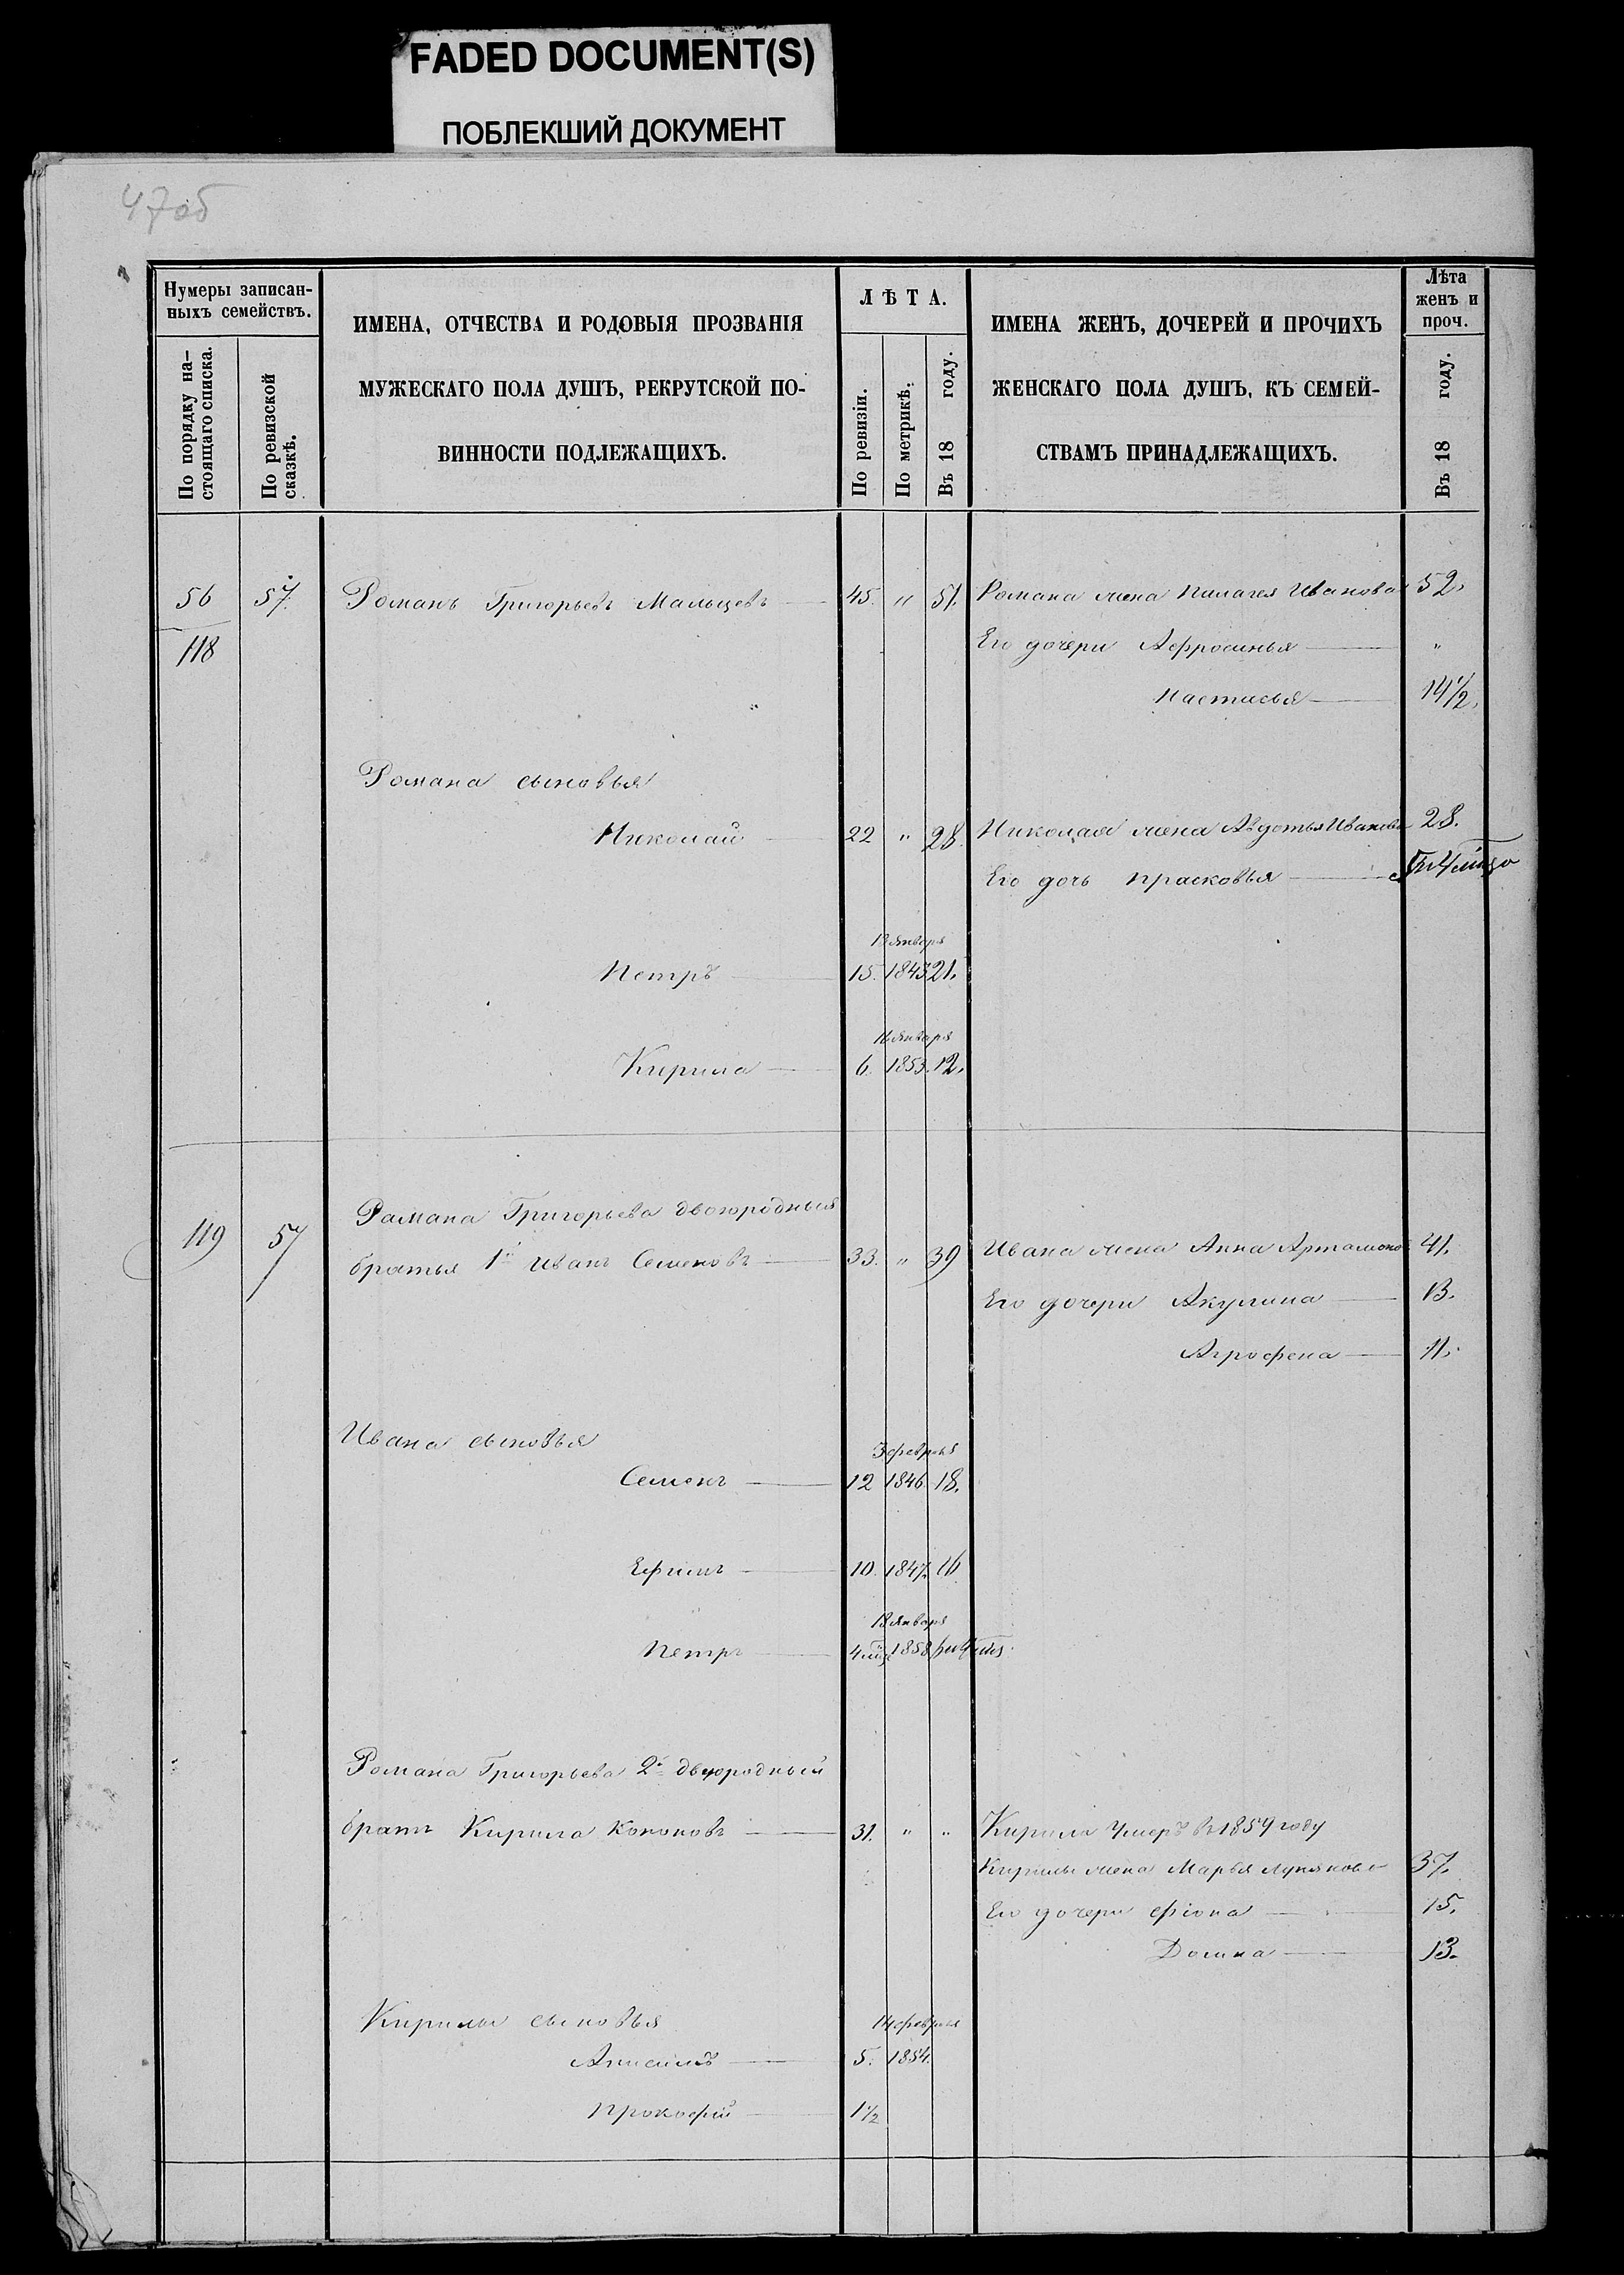 FADED DOCUMENT(S)
ПОБЛЕКШИЙ ДОКУМЕНТ
47об
Нумеры записан-
ныхъ семействъ.
По порядку на-
стоящаго списка.
По ревизской
сказкѣ.
ИМЕНА, ОТЧЕСТВА И РОДОВЫЯ ПРОЗВАНІЯ
МУЖЕСКАГО ПОЛА ДУШЪ, РЕКРУТСКОЙ ПО-
ВИННОСТИ ПОДЛЕЖАЩИХЪ.
ЛѢТА.
По ревизіи.
По метрикѣ.
Въ 18 году.
ИМЕНА ЖЕНЪ, ДОЧЕРЕЙ И ПРОЧИХЪ
ЖЕНСКАГО ПОЛА ДУШЪ, КЪ СЕМЕЙ-
СТВАМЪ ПРИНАДЛЕЖАЩИХЪ.
Лѣта
женъ и
проч.
Въ 18 году.
56 57. Романъ Григорьевъ Мальцевъ 45. " 51. Романа жена Пилагея Иванова 52.
118 Его дочери Аефросинья "
Настасья 14½.
Романа сыновья
Николай 22 " 28. Николая жена Авдотья Иванова 28.
Его дочь Прасковья
13 января
Петръ 15. 1843 21.
16 января
Кирила 6. 1853. 12.
Рамана Григорьева двоюродныя
119 57 братья 1й Иванъ Семеновъ 33. " 39 Ивана жена Анна Артамоно 41.
Его дочери Акулина 13.
Агрофена 11.
Ивана сыновья
3 февраля
Семенъ 12 1846. 18.
Ефимъ 10. 1847. 16
18 января
Петръ 1858
Романа Григорьева 2й двоюродный
братъ Кирила Кононовъ 31. " " Кирила умеръ въ 1859 году
Кирилы жена Марья Лукянова 37.
Его дочери Фіона 15.
Домна 13.
Кирилы сыновья
14 февраля
Анисимъ 5. 1854.
Прокофий 1½